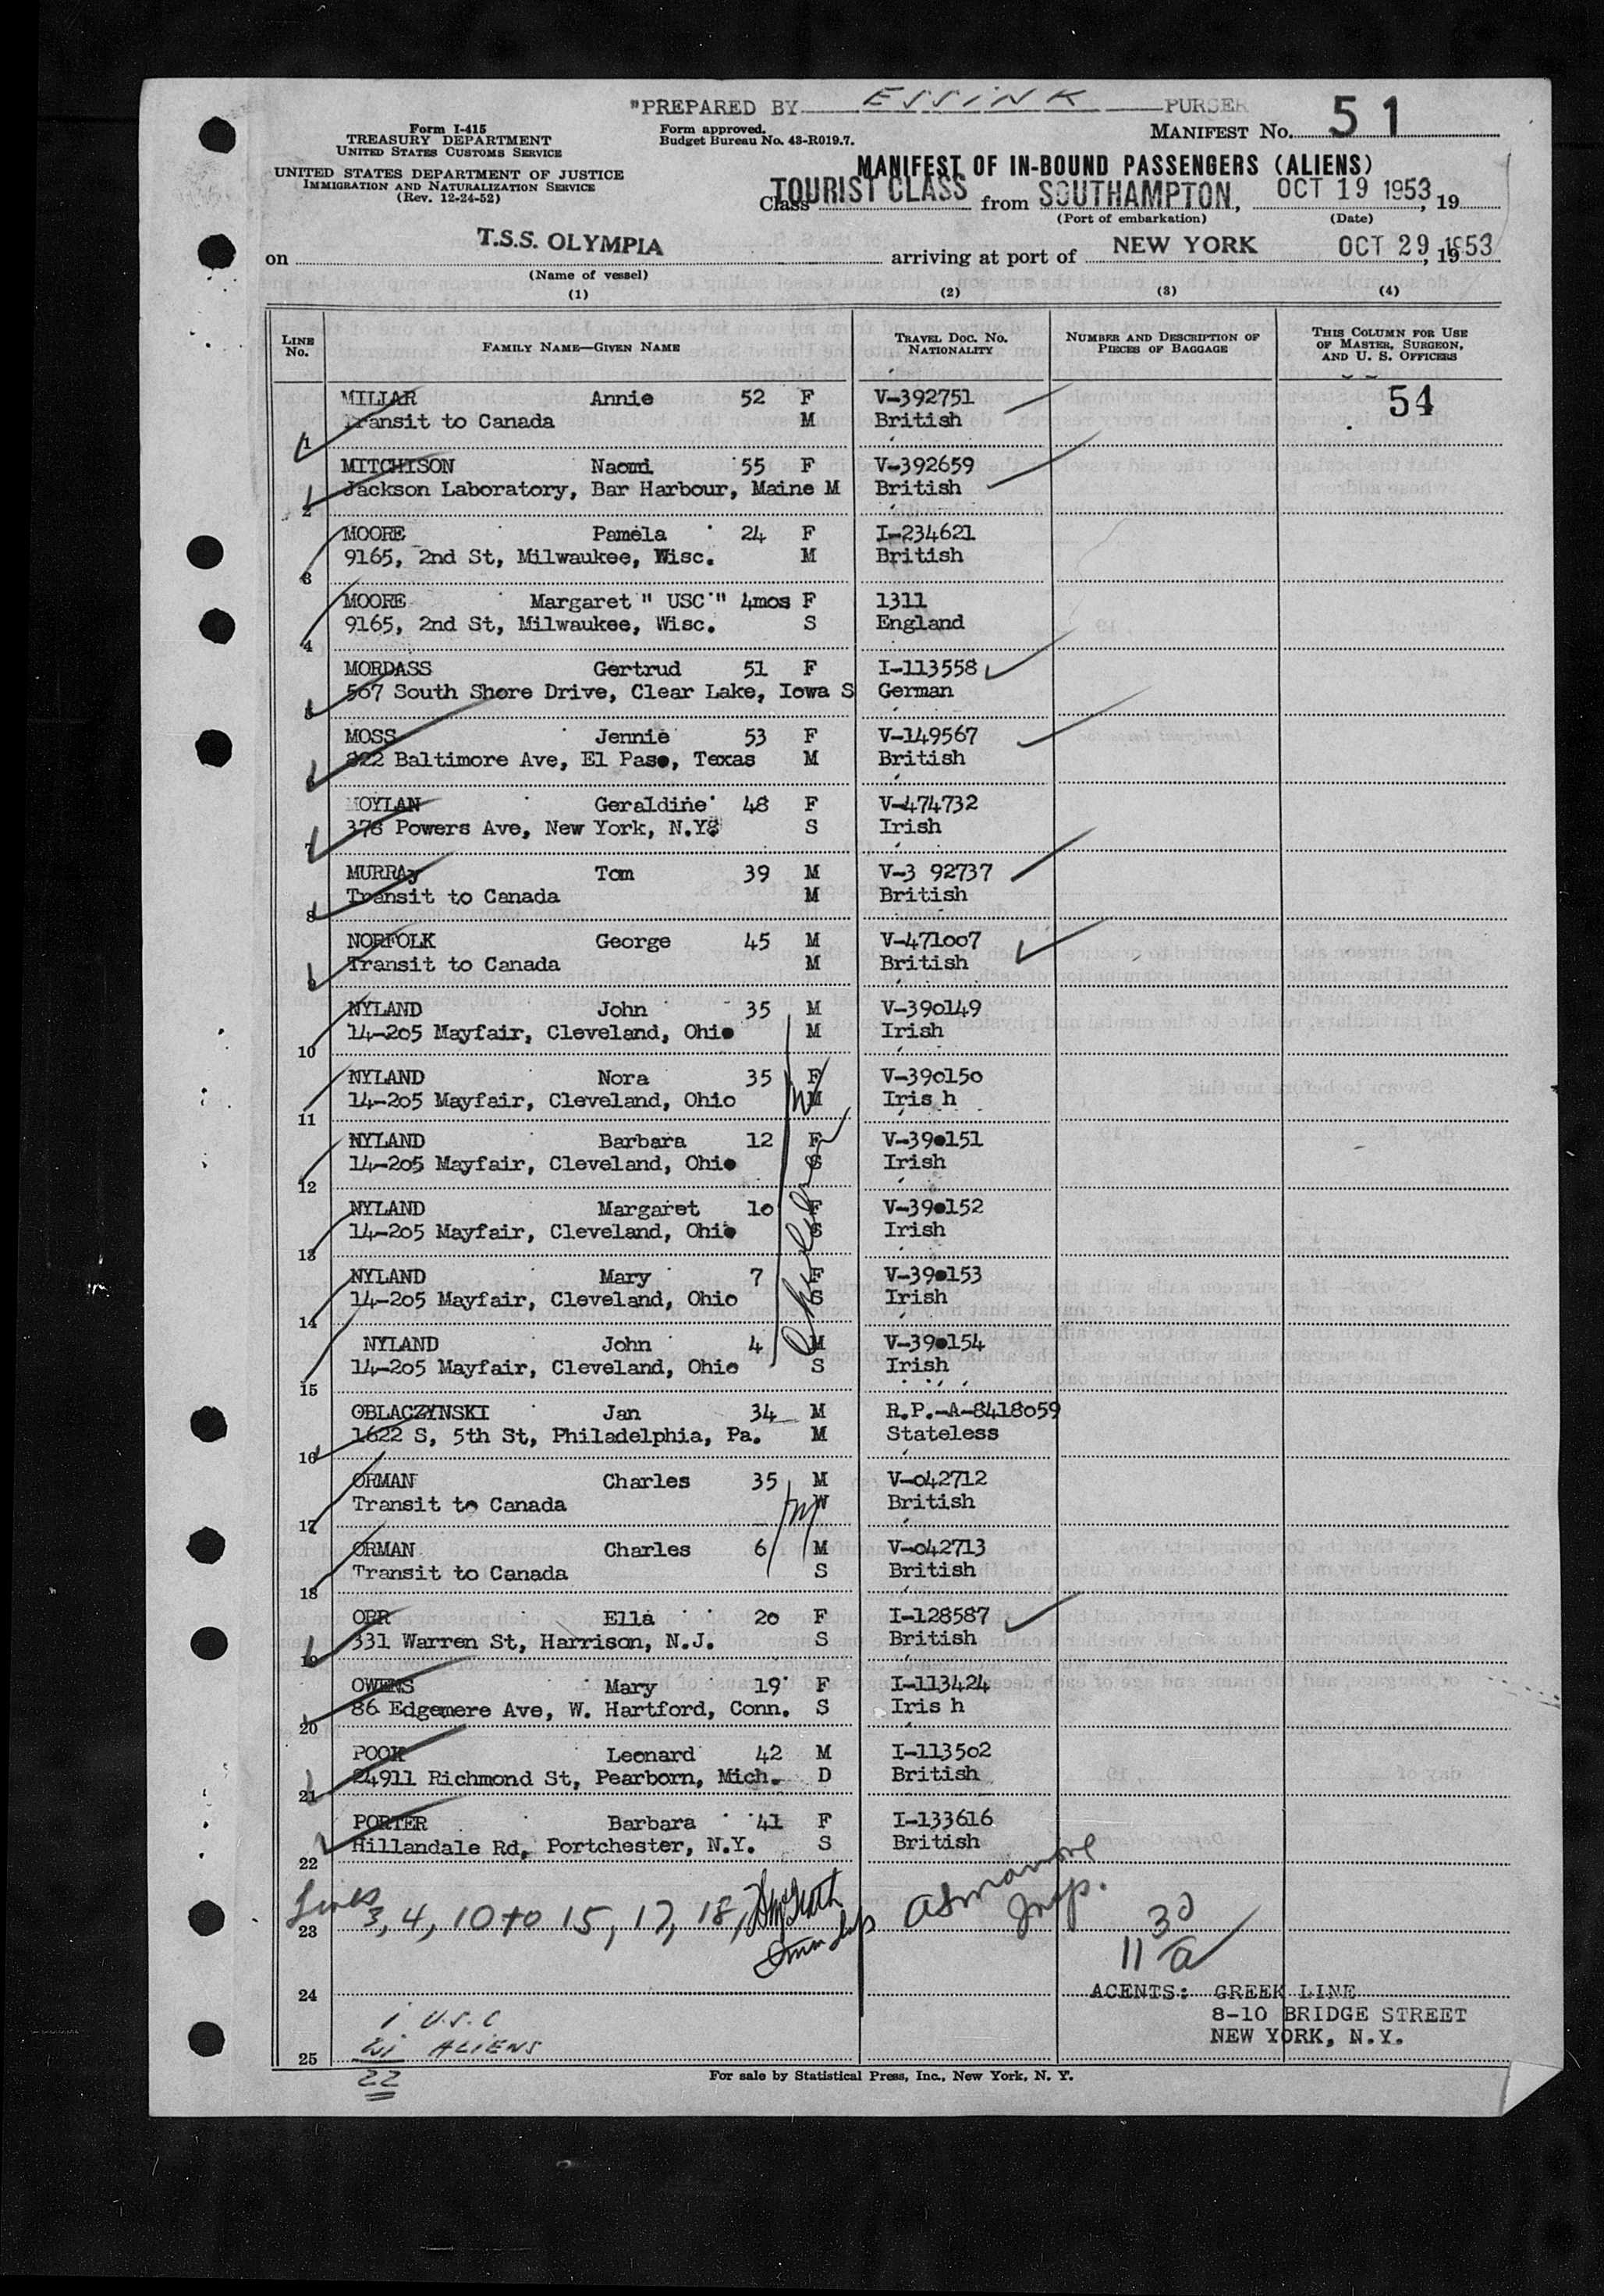 "PREPARED BY ESSINK PURSER
Form I-415
TREASURY DEPARTMENT
UNITED STATES CUSTOMS SERVICE
UNITED STATES DEPARTMENT OF JUSTICE
IMMIGRATION AND NATURALIZATION SERVICE
(Rev. 12-24-52)
Form approved.
Budget Bureau No. 43-R019.7.
MANIFEST No. 51
MANIFEST OF IN-BOUND PASSENGERS (ALIENS)
Class TOURIST CLASS from SOUTHAMPTON, OCT 19 1953, 19
(Port of embarkation) (Date)
on T.S.S. OLYMPIA arriving at port of NEW YORK OCT 29, 1953
(Name of vessel)
(1) (2) (3) (4)
LINE No. FAMILY NAME—GIVEN NAME TRAVEL DOC. No. NATIONALITY NUMBER AND DESCRIPTION OF PIECES OF BAGGAGE THIS COLUMN FOR USE OF MASTER, SURGEON, AND U. S. OFFICERS
MILLAR Annie 52 F V-392751 54
1 Transit to Canada M British
MITCHISON Naomi 55 F V-392659
2 Jackson Laboratory, Bar Harbour, Maine M British
MOORE Pamela 24 F I-234621
3 9165, 2nd St, Milwaukee, Wisc. M British
MOORE Margaret " USC " 4mos F 1311
4 9165, 2nd St, Milwaukee, Wisc. S England
MORDASS Gertrud 51 F I-113558
5 567 South Shore Drive, Clear Lake, Iowa S German
MOSS Jennie 53 F V-149567
6 822 Baltimore Ave, El Paso, Texas M British
MOYLAN Geraldine 48 F V-474732
7 378 Powers Ave, New York, N.Y. S Irish
MURRAy Tom 39 M V-3 92737
8 Transit to Canada M British
NORFOLK George 45 M V-471007
9 Transit to Canada M British
NYLAND John 35 M V-390149
10 14-205 Mayfair, Cleveland, Ohio M Irish
NYLAND Nora 35 F V-390150
11 14-205 Mayfair, Cleveland, Ohio M Iris h
NYLAND Barbara 12 F V-390151
12 14-205 Mayfair, Cleveland, Ohio S Irish
NYLAND Margaret 10 F V-390152
13 14-205 Mayfair, Cleveland, Ohio S Irish
NYLAND Mary 7 F V-390153
14 14-205 Mayfair, Cleveland, Ohio S Irish
NYLAND John 4 M V-390154
15 14-205 Mayfair, Cleveland, Ohio S Irish
OBLACZYNSKI Jan 34 M R.P.-A-8418059
16 1622 S, 5th St, Philadelphia, Pa. M Stateless
ORMAN Charles 35 M V-042712
17 Transit to Canada W British
ORMAN Charles 6 M V-042713
18 Transit to Canada S British
ORR Ella 20 F I-128587
19 331 Warren St, Harrison, N.J. S British
OWENS Mary 19 F I-113424
20 86 Edgemere Ave, W. Hartford, Conn. S Iris h
POOK Leonard 42 M I-113502
21 24911 Richmond St, Pearborn, Mich. D British
PORTER Barbara 41 F I-133616
22 Hillandale Rd, Portchester, N.Y. S British
Lines
23 3, 4, 10 to 15, 17, 18, Insp.
11 30 a
24 AGENTS: GREEK LINE
1 U.S.C 8-10 BRIDGE STREET
25 21 ALIENS NEW YORK, N.Y.
22
For sale by Statistical Press, Inc., New York, N. Y.